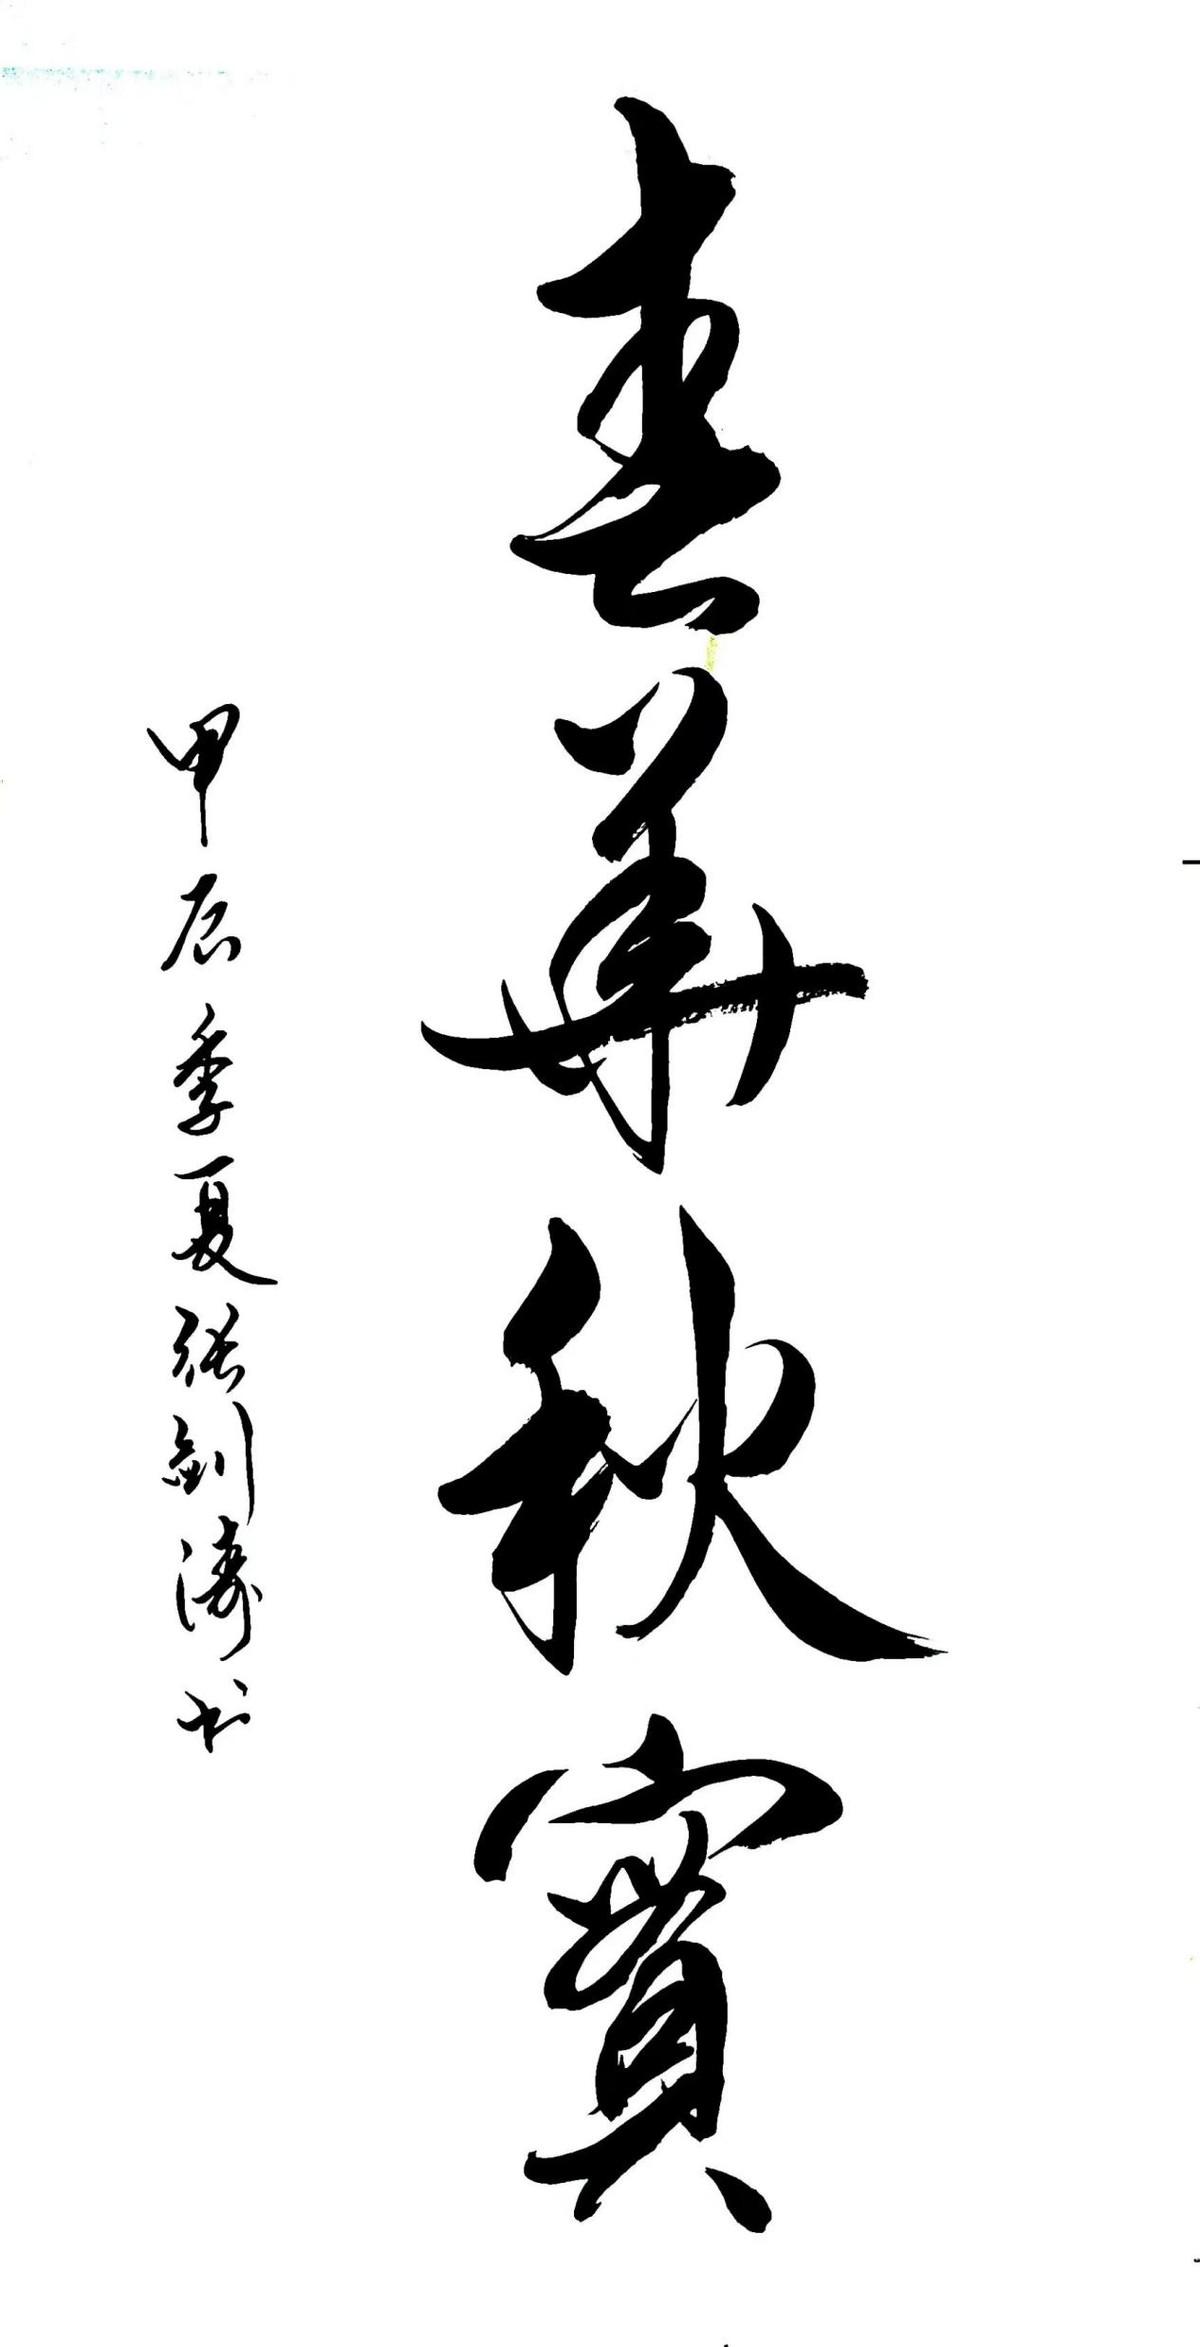 春華秋實
甲辰季夏張劍濤书